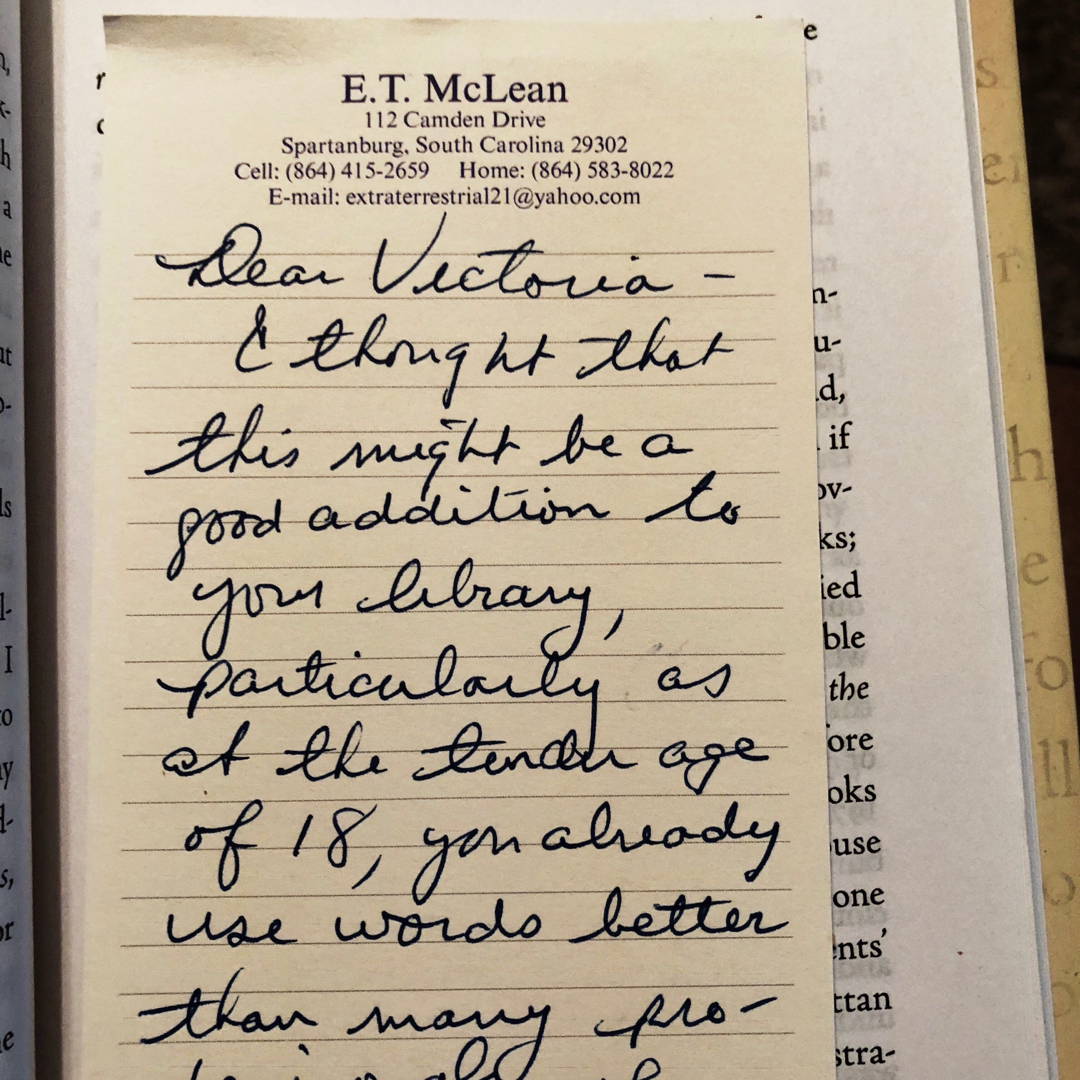 E.T. McLean
112 Camden Drive
Spartanburg, South Carolina 29302
Cell: (864) 415-2659 Home: (864) 583-8022
E-mail: extraterrestrial21@yahoo.com
Dear Victoria -
I thought that
this might be a
good addition to
your library,
particularly as
at the tender age
of 18, you already
use words better
than many pro-
n-
u-
d,
if
ov-
ks;
ied
ble
the
ore
oks
use
one
ents'
ttan
stra-